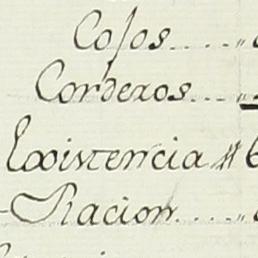 Cojos....."
Corderos...."
Existencia # 6
-Racion....."